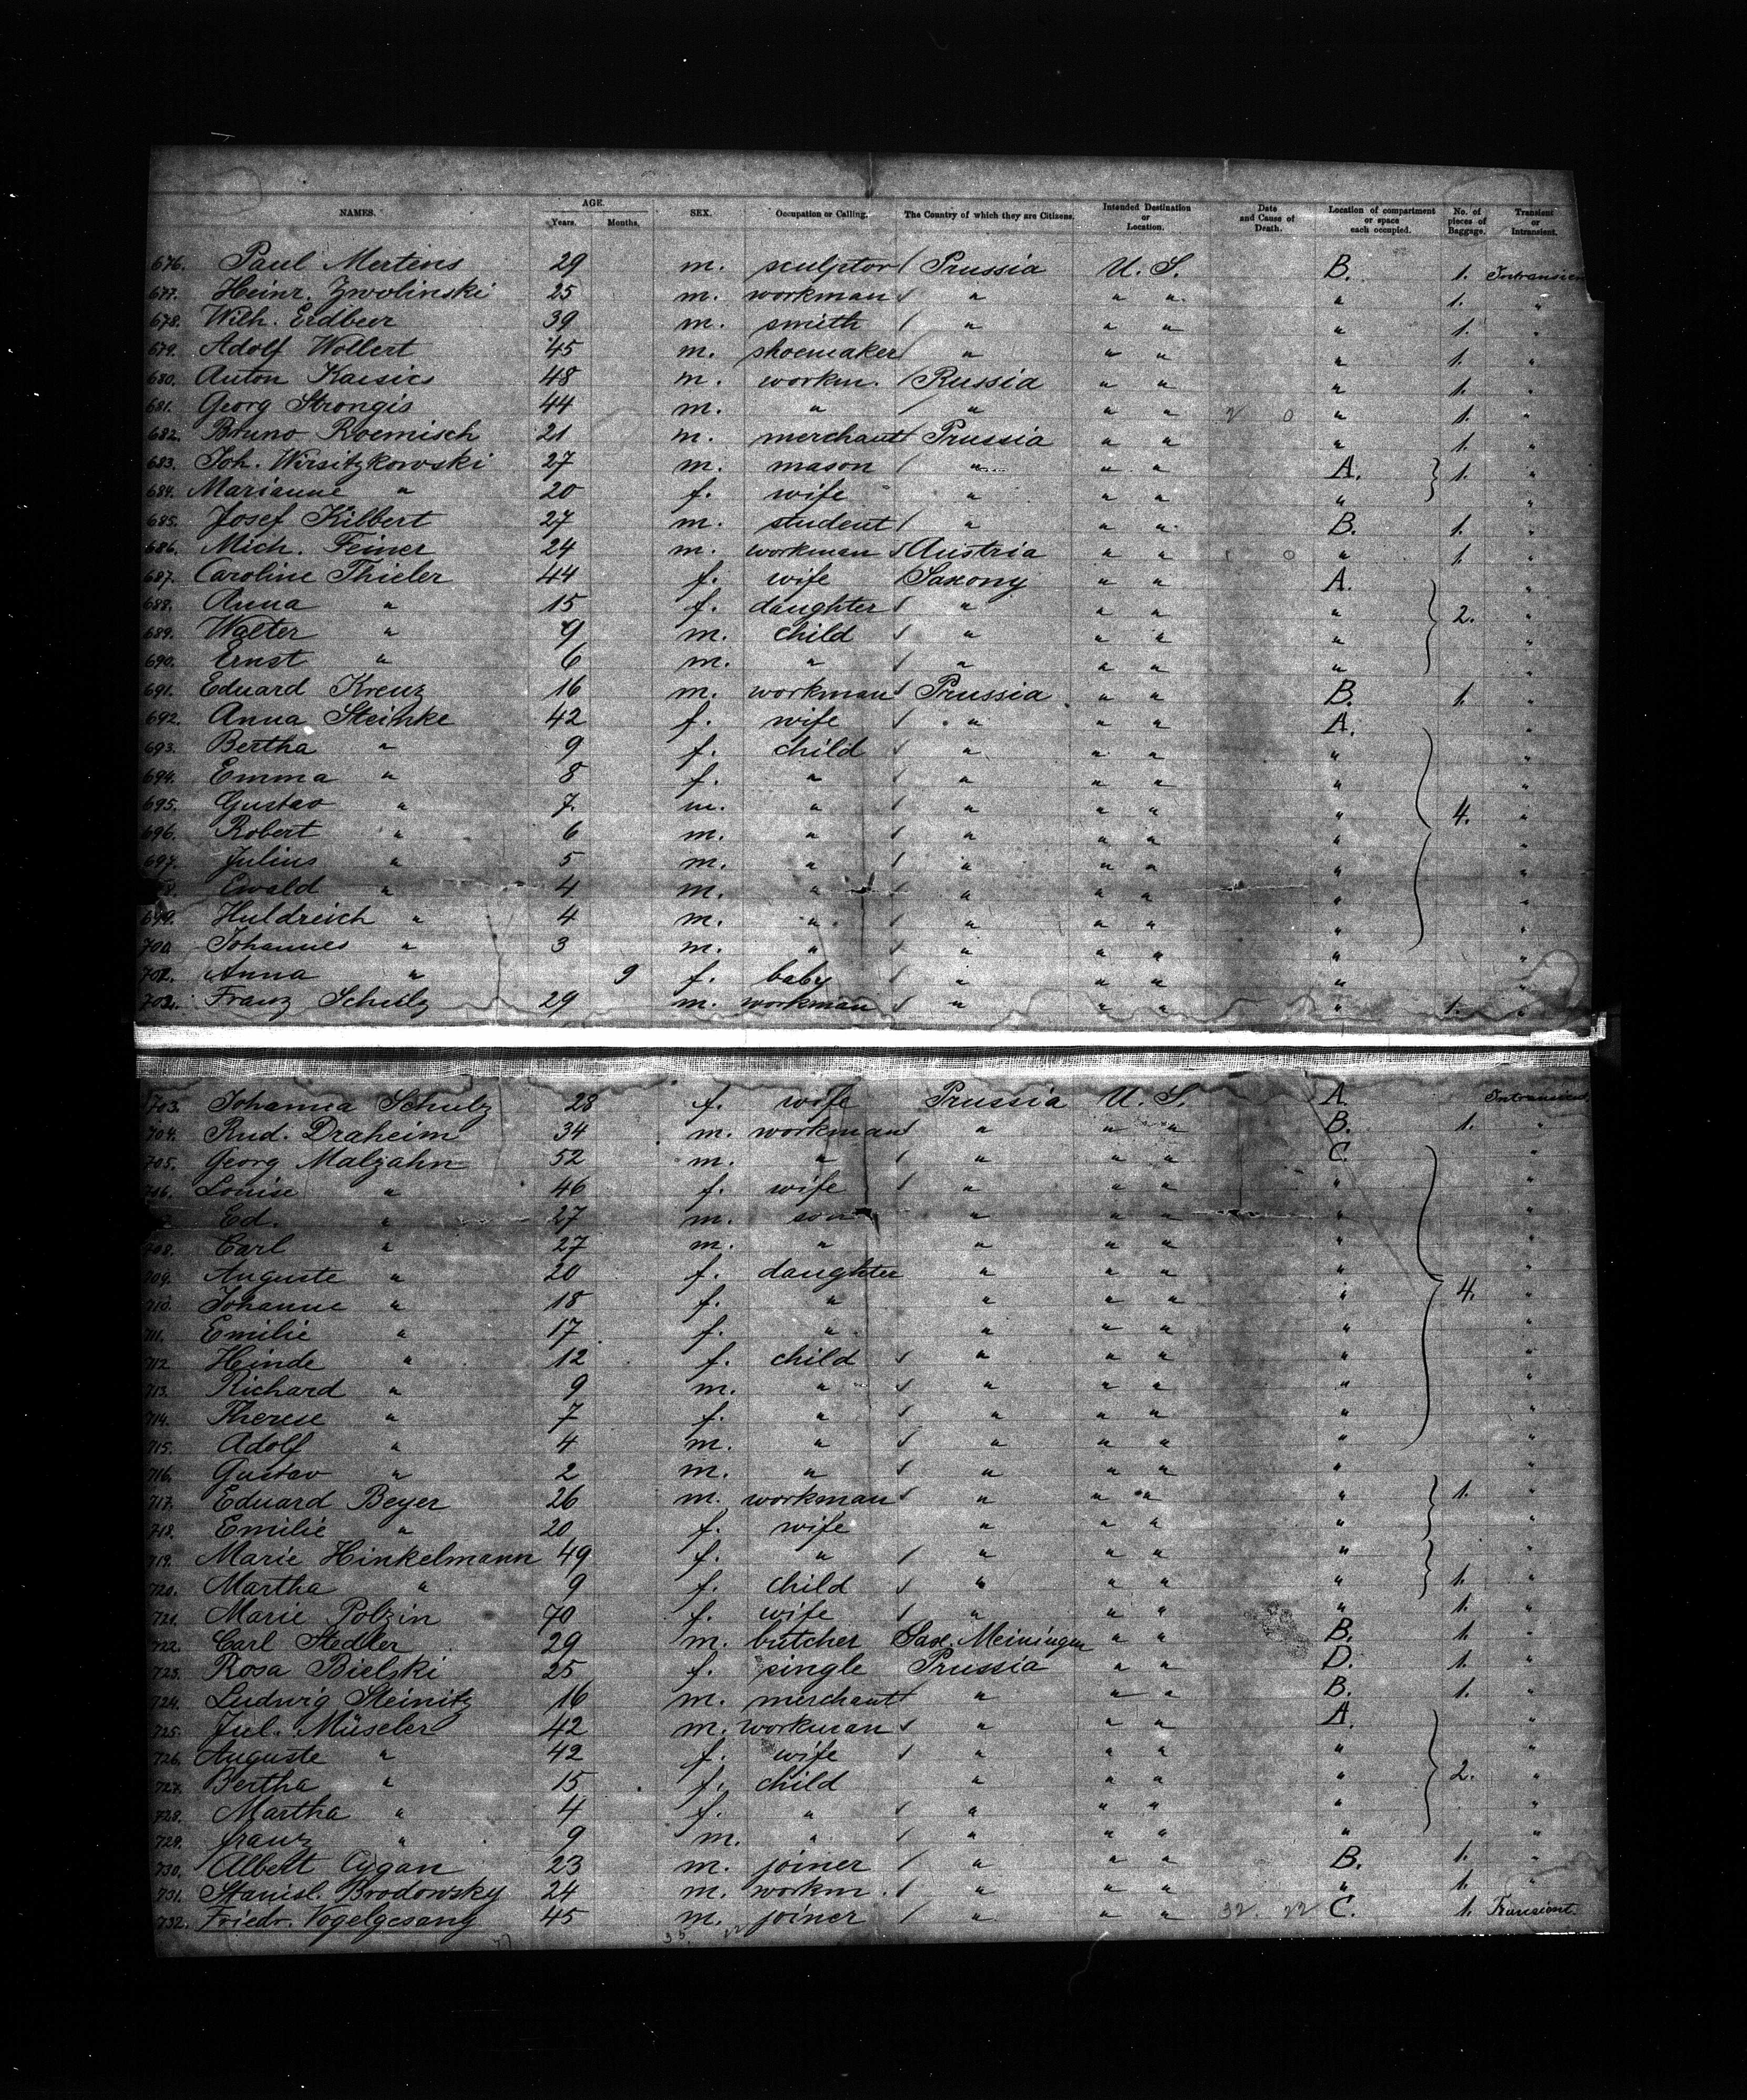 NAMES. AGE. Years. Months. SEX. Occupation or Calling. The Country of which they are Citizens. Intended Destination or Location. Date and Cause of Death. Location of compartment or space each occupied. No. of pieces of Baggage. Transient or Intransient.
676. Paul Mertens 29 m. sculptor Prussia U. S. B. 1. Intransient
677. Heinr. Zwolinski 25 m. workman " " " " 1. "
678. Wilh. Erdbeer 39 m. smith " " " " 1. "
679. Adolf Wollert 45 m. shoemaker " " " " 1. "
680. Anton 48 m. workm. Russia " " " 1. "
681. Georg Strongis 44 m. " " " " " 1. "
682. Bruno Roemisch 21 m. merchant Prussia " " " 1. "
683. Joh. Wirsitzkowski 27 m. mason " " " A. 1. "
684. Marianne " 20 f. wife " " " " "
685. Josef Kilbert 27 m. student " " " B. 1. "
686. Mich. Feiner 24 m. workman Austria " " " 1. "
687. Caroline Thieler 44 f. wife Saxony " " A. "
688. Anna " 15 f. daughter " " " " 2. "
689. Walter " 9 m. child " " " " "
690. Ernst " 6 m. " " " " " "
691. Eduard Kreuz 16 m. workman Prussia " " B. 1. "
692. Anna Steinke 42 f. wife " " " A. "
693. Bertha " 9 f. child " " " " "
694. Emma " 8 f. " " " " " "
695. Gustav " 7. m. " " " " " 4. "
696. Robert " 6 m. " " " " " "
697. Julius " 5 m. " " " " " "
Ewald " 4 m. " " " " " "
699. Huldreich " 4 m. " " " " " "
700. Johannes " 3 m. " " " " " "
701. Anna " 9 f. baby " " " " "
702. Franz Schulz 29 m. workman " " " " 1. "
703. Johanna Schulz 28 f. wife Prussia U. S. A. Intransient
704. Rud. Draheim 34 m. workman " " " B. 1. "
705. Georg Malzahn 52 m. " " " " C. "
706. Louise " 46 f. wife " " " " "
Ed. " 27 m. son " " " " "
708. Carl " 27 m. " " " " " "
709. Auguste " 20 f. daughter " " " " "
710. Johanne " 18 f. " " " " " 4. "
711. Emilie " 17 f. " " " " " "
712. Hinde " 12 f. child " " " " "
713. Richard " 9 m. " " " " " "
714. Therese " 7 f. " " " " " "
715. Adolf " 4 m. " " " " " "
716. Gustav " 2 m. " " " " " "
717. Eduard Beyer 26 m. workman " " " " 1. "
718. Emilie " 20 f. wife " " " " "
719. Marie Hinkelmann 49 f. " " " " " "
720. Martha " 9 f. child " " " " 1. "
721. Marie Polzin 70 f. wife " " " " 1. "
722. Carl Stedler 29 m. butcher Sax. Meiningen " " B. 1. "
723. Rosa Bielski 25 f. single Prussia " " D. 1. "
724. Ludwig Steinitz 16 m. merchant " " " B. 1. "
725. Jul. Müseler 42 m. workman " " " A. "
726. Auguste " 42 f. wife " " " " "
727. Bertha " 15 f. child " " " " 2. "
728. Martha " 4 f. " " " " " "
729. Franz " 9 m. " " " " " "
730. Albert Cygan 23 m. joiner " " " B. 1. "
731. Stanisl. Brodowsky 24 m. workm. " " " " 1. "
732. Friedr. Vogelgesang 45 m. joiner " " " 32. 22 C. 1. Transient